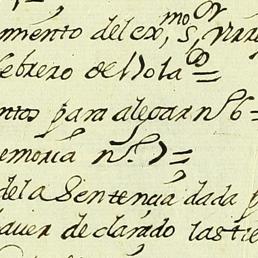 miento del exmo Sr Virr
febrero de Nola
ntos para alegar nº 6 =
emoria nº 7 =
dela Sentencia dada p
haver declarado las tie